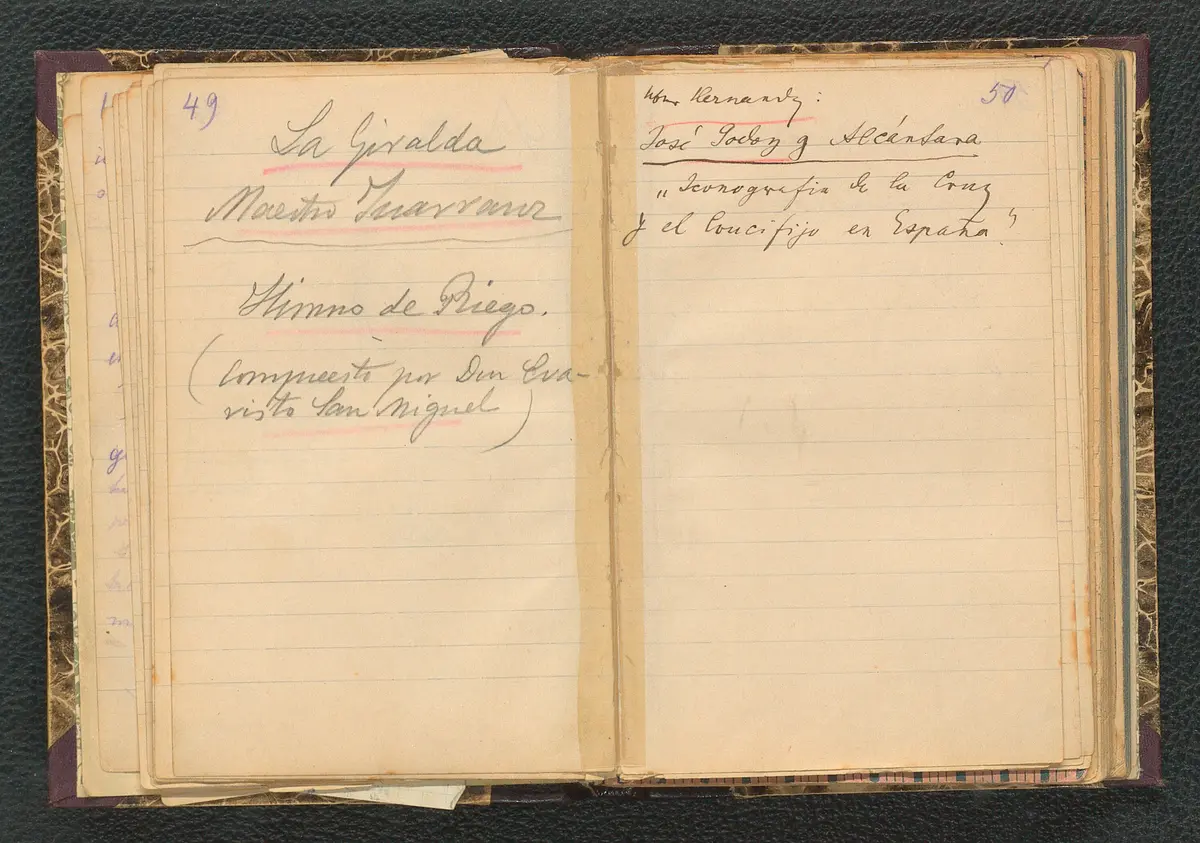 49
La Giralda
Maestro Juarranz
Himno de Riego.
(compuesto por Don Eva-
risto San Miguel)
50
Hernandz:
José Godoy y Alcántara
„Iconografia de la Cruz
y el Crucifijo en España"